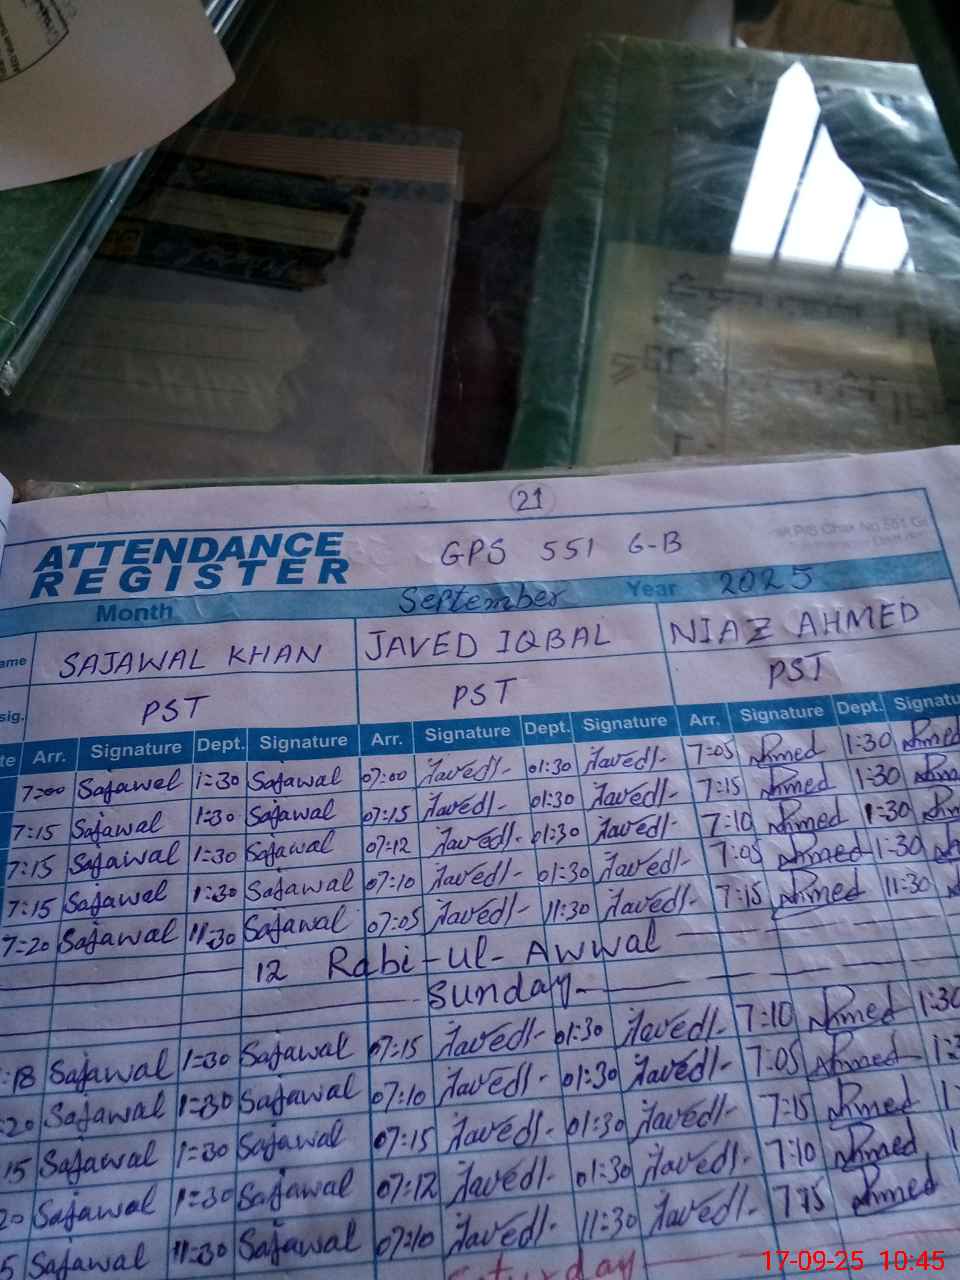 21
ATTENDANCE
REGISTER
GPS 551 G-B
Month September Year 2025
ame SAJAWAL KHAN JAVED IQBAL NIAZ AHMED
sig. PST PST PST
te Arr. Signature Dept. Signature Arr. Signature Dept. Signature Arr. Signature Dept. Signatu
7=00 Sajawal 1=30 Sajawal 07:00 Javed 01:30 Javed 7:05 Ahmed 1:30 Ahmed
7:15 Sajawal 1:30 Sajawal 07:15 Javed 01:30 Javed 7:15 Ahmed 1:30
7:15 Sajawal 1=30 Sajawal 07:12 Javed 01:30 Javed 7:10 Ahmed 1:30
7:15 Sajawal 1:30 Sajawal 07:10 Javed 01:30 Javed 7:05 Ahmed 1:30
7=20 Sajawal 11=30 Sajawal 07:05 Javed 11:30 Javed 7:15 Ahmed 11:30
12 Rabi-ul-Awwal
Sunday
:18 Sajawal 1=30 Sajawal 07:15 Javed 01:30 Javed 7:10 Ahmed 1:30
:20 Sajawal 1=30 Sajawal 07:10 Javed 01:30 Javed 7:05 Ahmed 1:3
15 Sajawal 1=30 Sajawal 07:15 Javed 01:30 Javed 7:15 Ahmed
20 Sajawal 1=30 Sajawal 07:12 Javed 01:30 Javed 7:10 Ahmed
5 Sajawal 11=30 Sajawal 07:10 Javed 11:30 Javed 7:15 Ahmed
Saturday
17-09-25 10:45